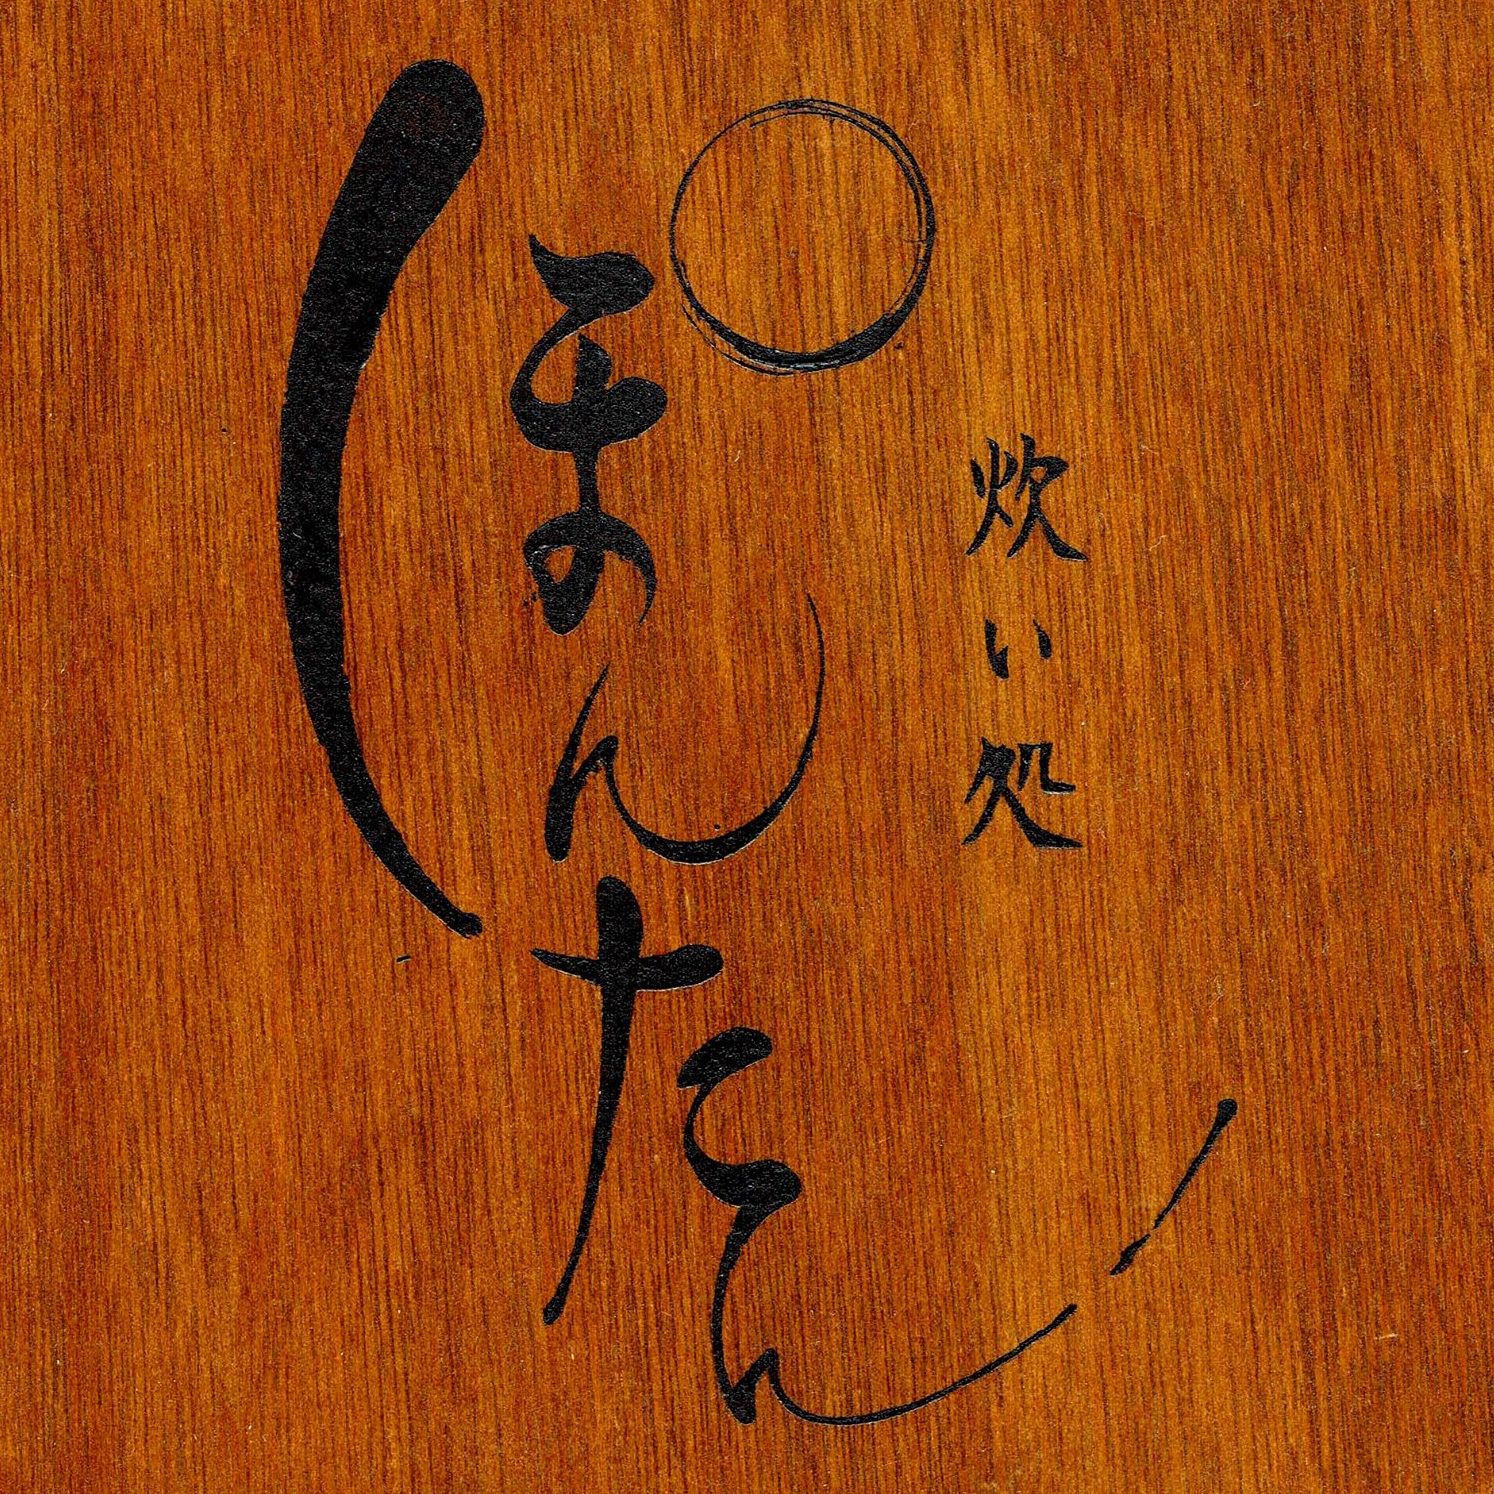 炊い処
ぽんたん